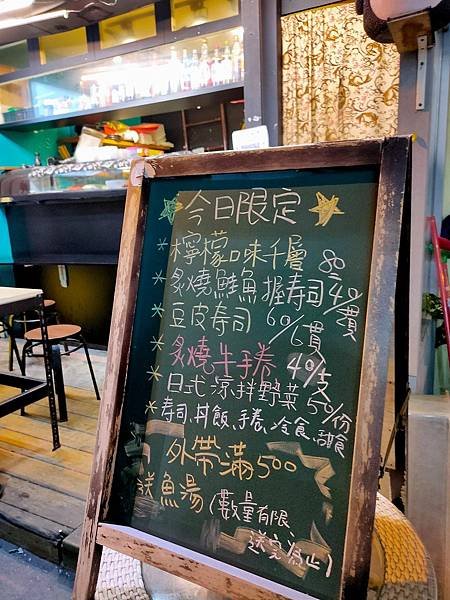 今日限定
*檸檬口味千層 80
*炙燒鮭魚握寿司 40/貫
*豆皮寿司 60/6貫
*炙燒牛手卷 49/支
*日式涼拌野菜 50/份
*寿司、丼飯、手卷、冷食、甜食
外帶滿500
送魚湯(數量有限
送完為止)